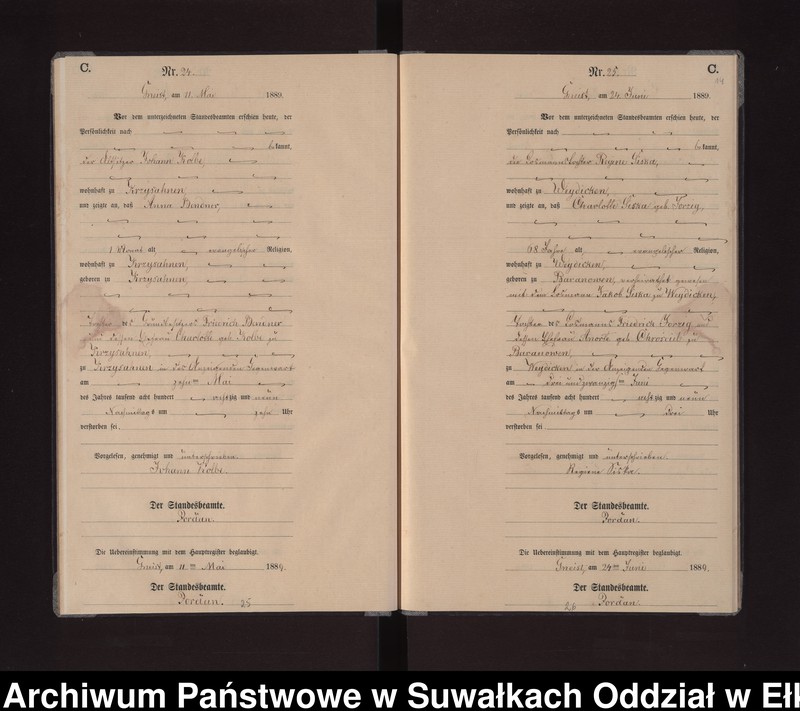 C.
Nr. 24.
Gneist, am 11. Mai 1889.
Vor dem unterzeichneten Standesbeamten erschien heute, der
Persönlichkeit nach
bekannt,
der Altsitzer Johann Kolbe,
wohnhaft zu Krzysahnen,
und zeigte an, daß Anna
1 Monat alt, evangelischer Religion,
wohnhaft zu Krzysahnen,
geboren zu Krzysahnen
Tochter des Grundbesitzers Heinrich
und dessen Ehefrau Charlotte geb. Kolbe zu
Krzysahnen,
zu Krzysahnen in des Anzeigenden Gegenwart
am zehnten Mai
des Jahres tausend acht hundert achtzig und neun
Nachmittags um zehn Uhr
verstorben sei.
Vorgelesen, genehmigt und unterschrieben.
Johann Kolbe.
Der Standesbeamte.
Pordan.
Die Uebereinstimmung mit dem Hauptregister beglaubigt.
Gneist, am 11ten Mai 1889.
Der Standesbeamte.
Pordan.
25
C.
Nr. 25.
Gneist, am 24. Juni 1889.
Vor dem unterzeichneten Standesbeamten erschien heute, der
Persönlichkeit nach
bekannt,
die Losmannstochter Regine
wohnhaft zu Weydicken,
und zeigte an, daß Charlotte geb.
68 Jahre alt, evangelischer Religion,
wohnhaft zu Weydicken,
geboren zu Baranowen, verheirathet gewesen
mit dem Losmann Jakob zu Weydicken,
Tochter des Losmanns Friedrich und
dessen Ehefrau geb. zu
Baranowen,
zu Weydicken in der Anzeigenden Gegenwart
am drei und zwanzigsten Juni
des Jahres tausend acht hundert achtzig und neun
Nachmittags um drei Uhr
verstorben sei
Vorgelesen, genehmigt und unterschrieben.
Regine
Der Standesbeamte.
Pordan.
Die Uebereinstimmung mit dem Hauptregister beglaubigt.
Gneist, am 24ten Juni 1889.
Der Standesbeamte.
26 Pordan.
Archiwum Państwowe w Suwałkach Oddział w Ełk